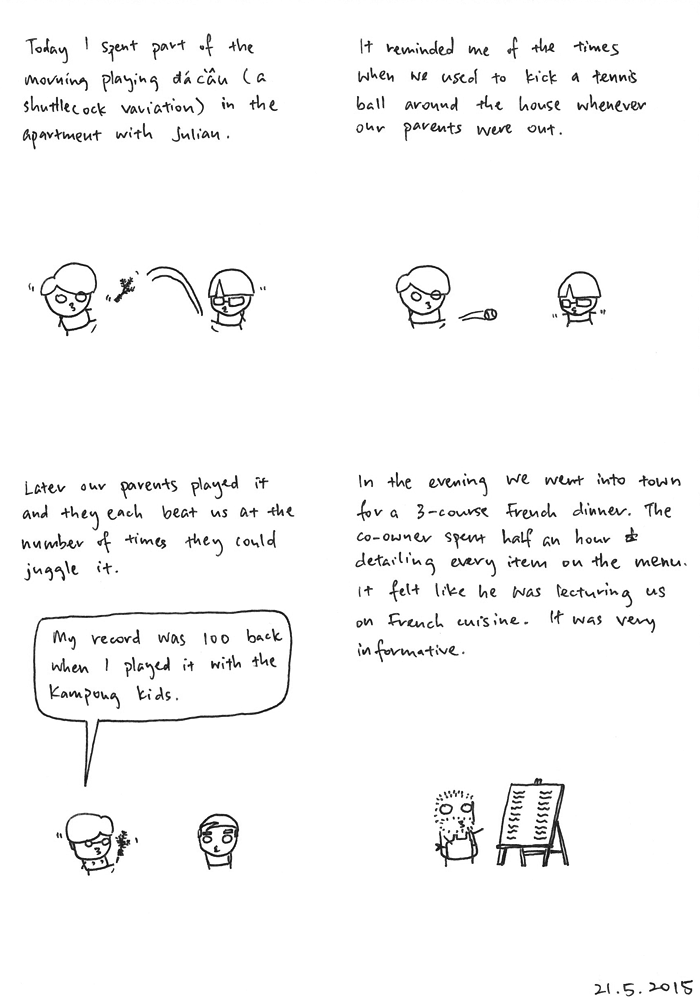 Today I spent part of the
morning playing đá cầu (a
shuttlecock variation) in the
apartment with Julian.
It reminded me of the times
when we used to kick a tennis
ball around the house whenever
our parents were out.
Later our parents played it
and they each beat us at the
number of times they could
juggle it.
My record was 100 back
when I played it with the
Kampong kids.
In the evening we went into town
for a 3-course French dinner. The
co-owner spent half an hour
detailing every item on the menu.
It felt like he was lecturing us
on French cuisine. It was very
informative.
21.5.2015